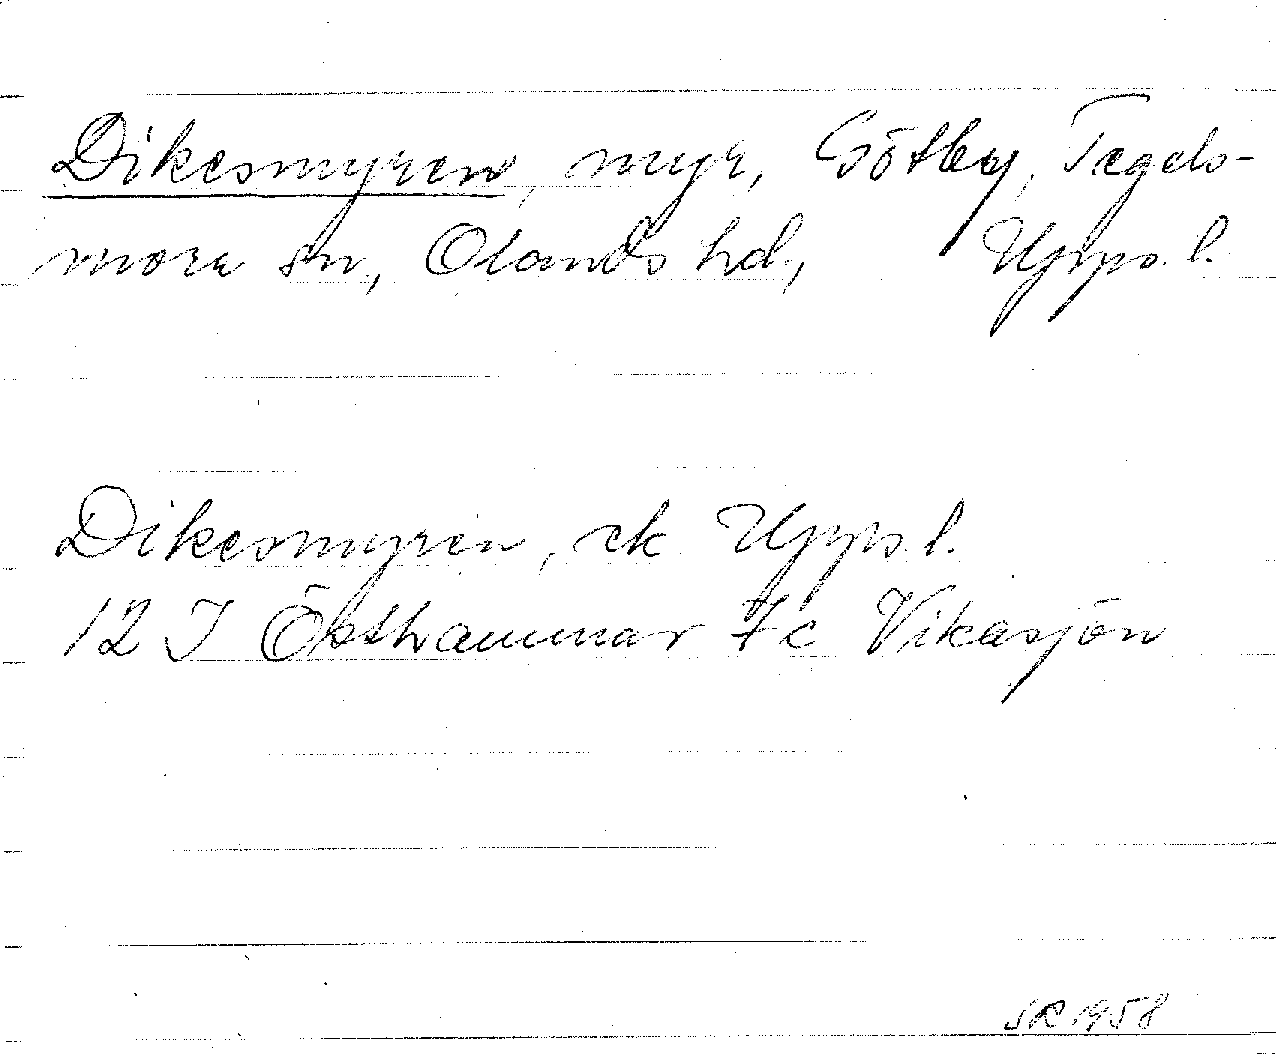 Dikesmyren, myr, Götby, Tegels-
mora sn, Olands hd, Upps. l.
Dikesmyren, ek Upps. l.
12 I Östhammar 7c Vikasjön
SR 1958